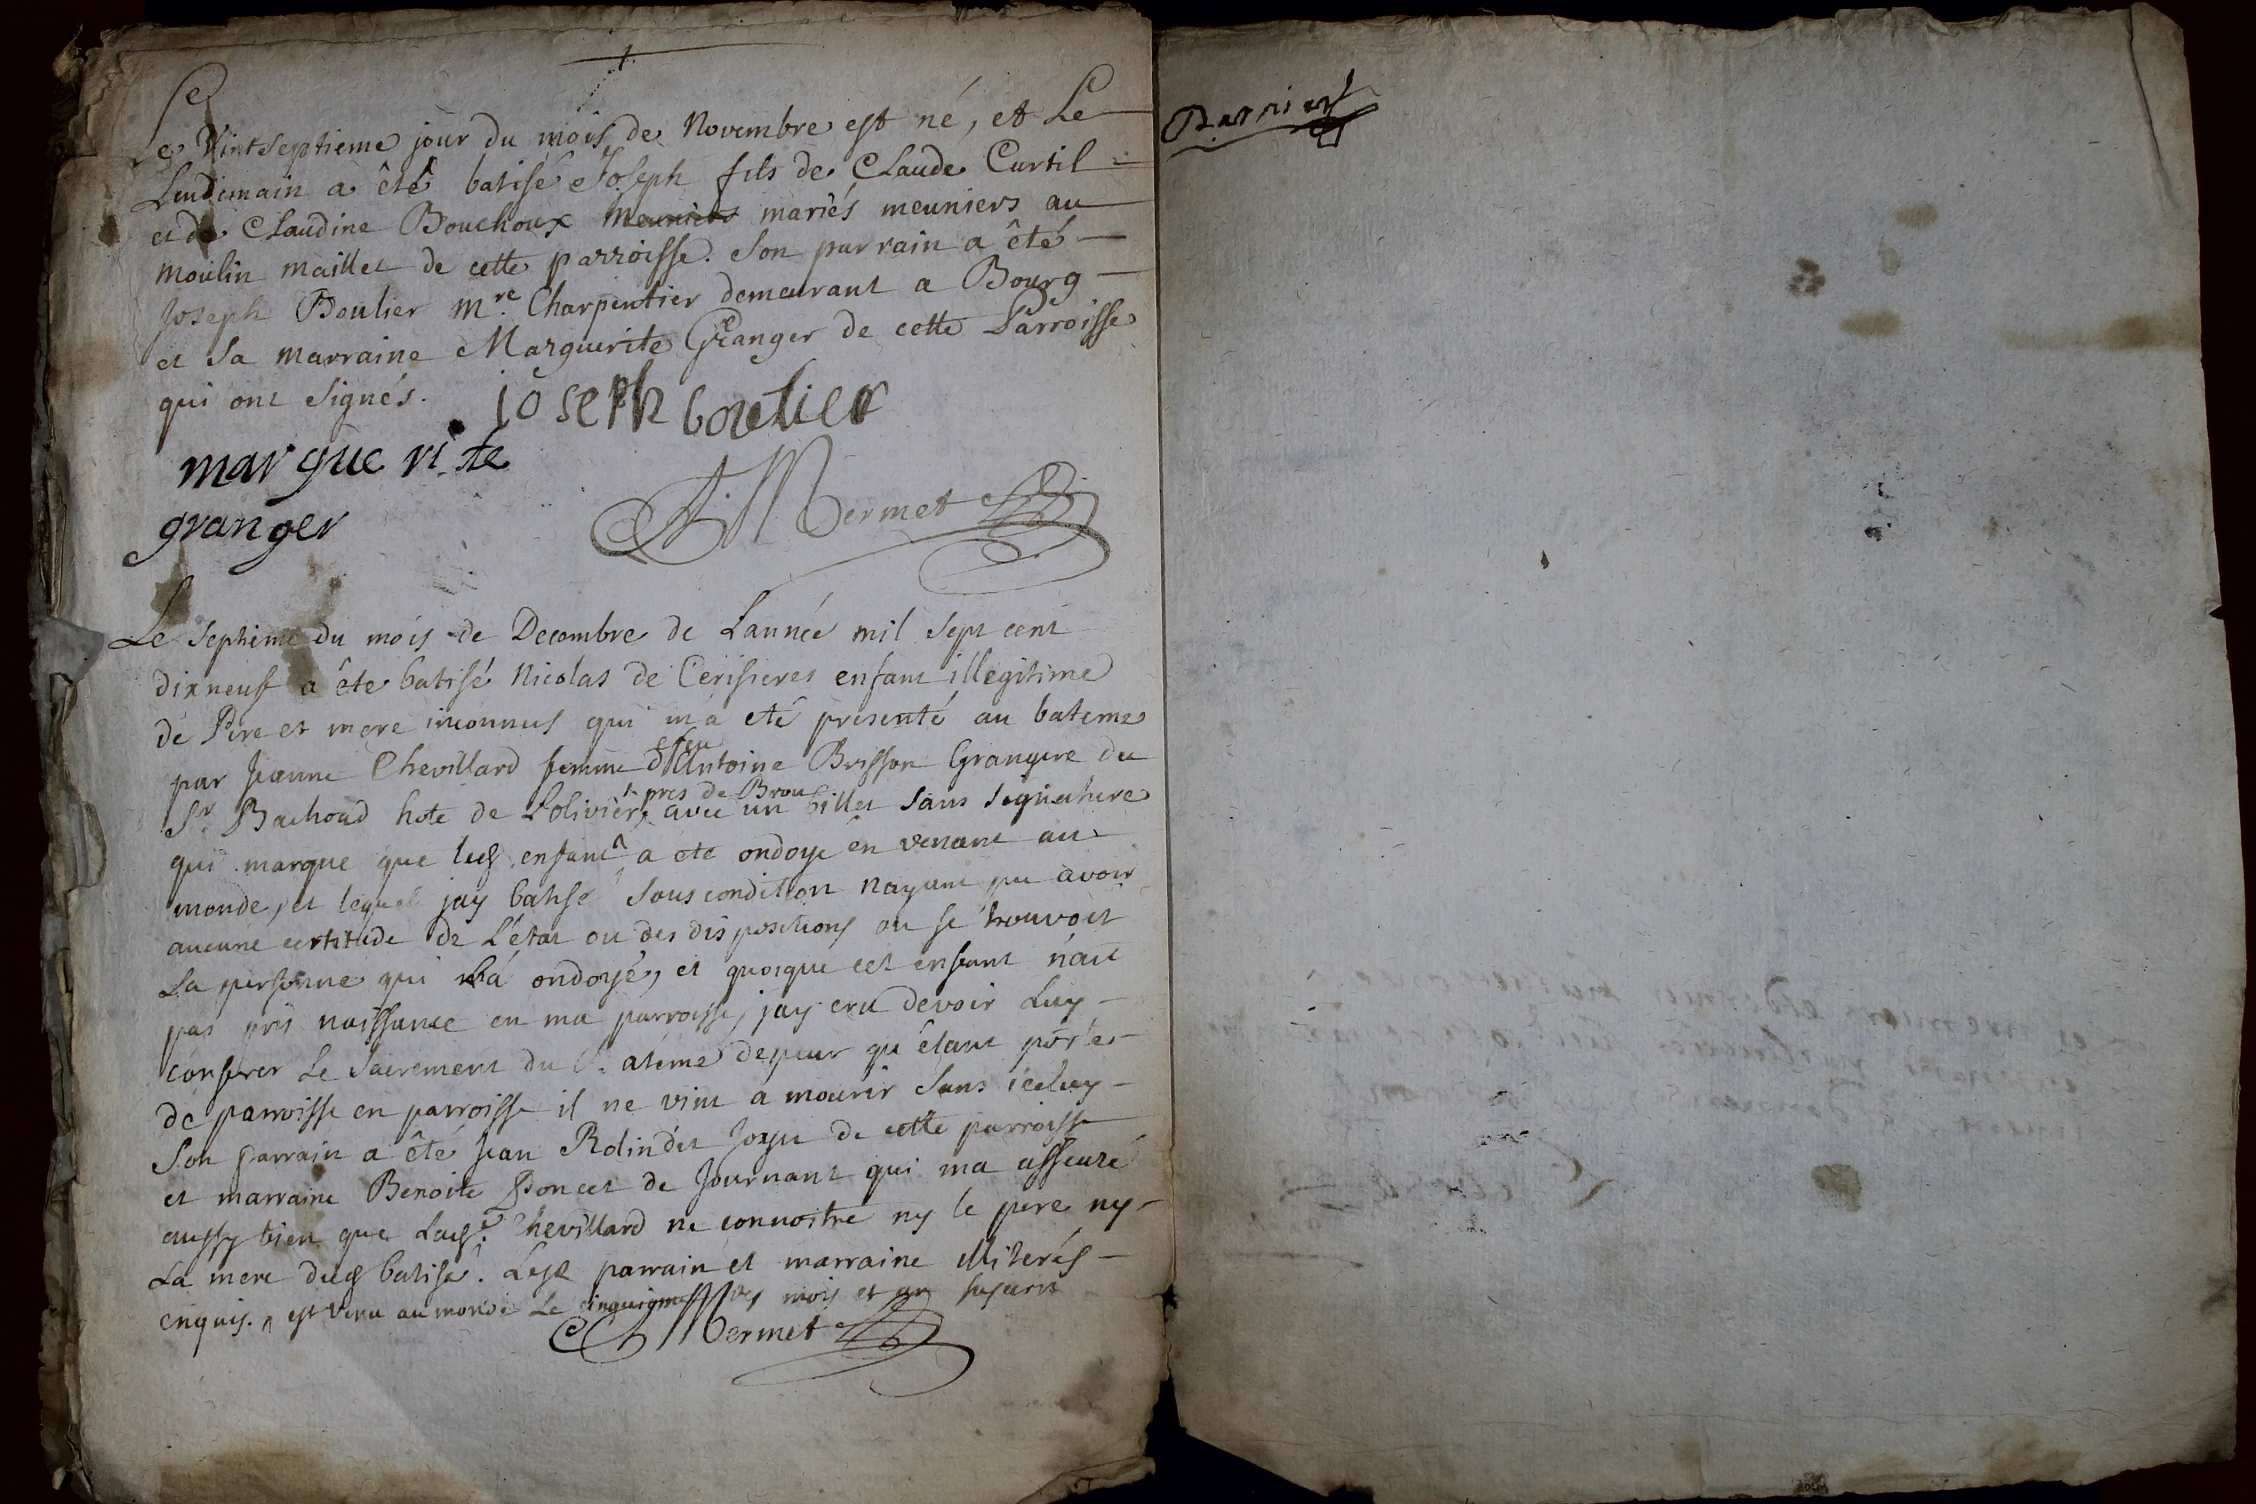 Le Vintseptieme jour du mois de Novembre est né, et Le
Lendemain a êté batisé Joseph fils de Claude Curtil
et de Claudine Bouchoux meuniers mariés meuniers au
moulin maillet de cette parroisse. Son parrain a êté
Joseph Boulier Mre Charpentier demeurant a Bourg
et Sa marraine Marguerite Granger de cette Parroisse
qui ont Signés.
joseph boulier
marguerite
granger
Mermet
Le Septieme du mois de Decembre de Lannée mil Sept cent
dixneuf a été batisé Nicolas de Cerisieres enfant illegitime
de Pere et mere inconnus qui m'a eté présenté au bateme
par Jeanne Chevillard femme d'Antoine Brisson Grangere du
pres de Brou
Sr Bachoud hote de Lolivier, avec un billet Sans Signature
qui marque que led enfant a eté ondoyé en venant au
monde, et lequel jay batisé Sous condition nayant pu avoir
aucune certitude de L'état ou des dispositions ou se trouvoit
La personne qui l'a ondoyé, et quoique cet enfant n'ait
pas pris naissance en ma parroisse, jay cru devoir Luy
conferer Le Sacrement du Bateme depeur qu'étant porté
de parroisse en parroisse il ne vint a mourir Sans iceluy
Son parrain a êté Jean Rolin dit Joyeu de cette parroisse
et marraine Benoite Poncet de Journant qui ma asseuré
aussy bien que Lad. Chevillard ne connoitre ny le pere ny
La mere dud batisé. Lesd parrain et marraine illiterés
enquis. est venu au monde Le cinquieme des mois et an susecrit
Mermet